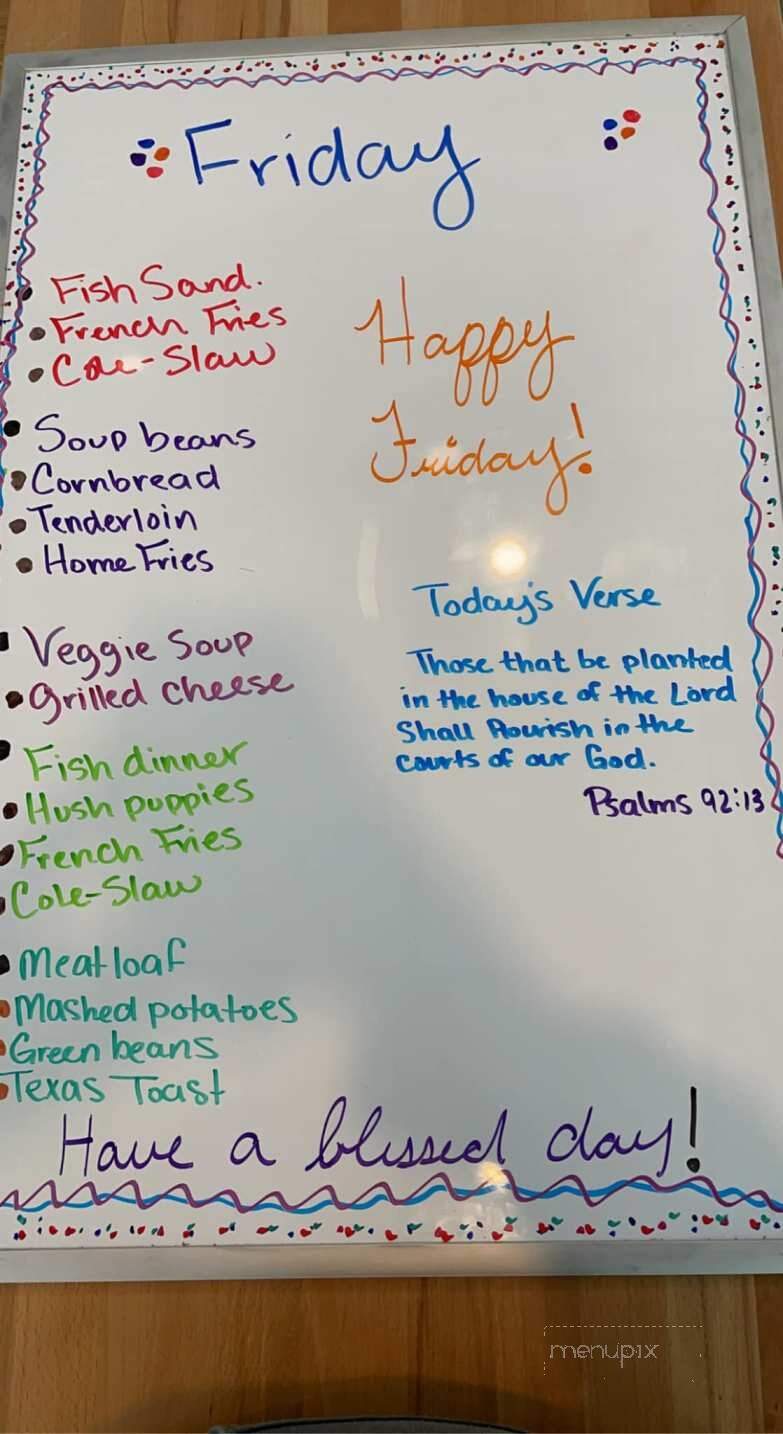 Friday
Fish Sand.
French Fries
Cole-Slaw
Soup beans
Cornbread
Tenderloin
Home Fries
Veggie Soup
Grilled cheese
Fish dinner
Hush puppies
French Fries
Cole-Slaw
Meatloaf
Mashed potatoes
Green beans
Texas Toast
Happy
Friday!
Today's Verse
Those that be planted
in the house of the Lord
Shall flourish in the
courts of our God.
Psalms 92:13
Have a blessed day!
menupix